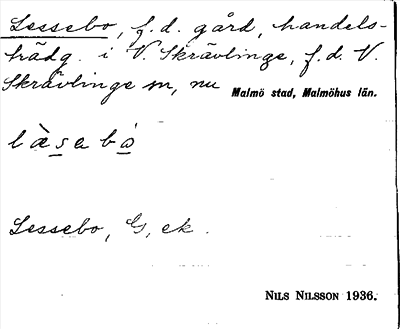 Lessebo, f.d. gård, handels-
trädg. i V. Skrävlinge, f.d. V.
Skrävlinge sn, nu Malmö stad, Malmöhus län.
lὰsebò
Lessebo, G, ek.
NILS NILSSON 1936.